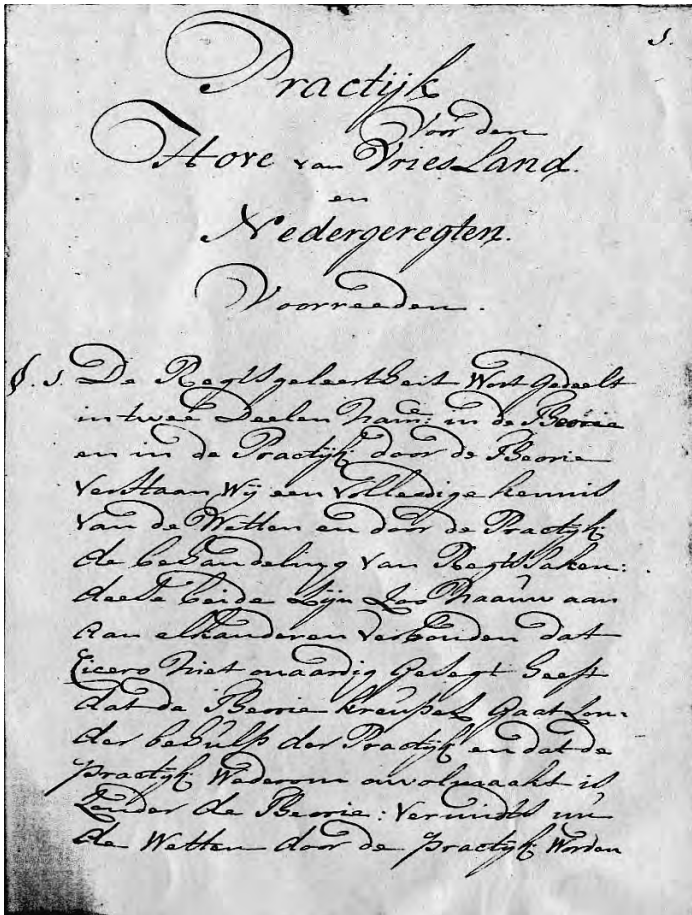 1.
Practijk
Voor den
Hove van VriesLand.
en
Nedergeregten.
Voorreeden.
§. 1. De Regtsgeleertheit Wort Gedeelt
in twee Deelen Nam: in de Theorie
en in de Practijk; door de Theorie
verstaan Wij een volledige kennis
van de Wetten en door de Practijk
de behandeling van Regts Saken:
deese beide Zijn Zoo Naauw aan
aan elkanderen verbonden dat
Cicero Niet onaardig Gesegt heeft
dat de Theorie kreupel Gaat Zon:
der behulp der Practijk en dat de
practijk Wederom onvolmaakt is
Zonder de Theorie: vermidts nu
de Wetten door de practijk Worden